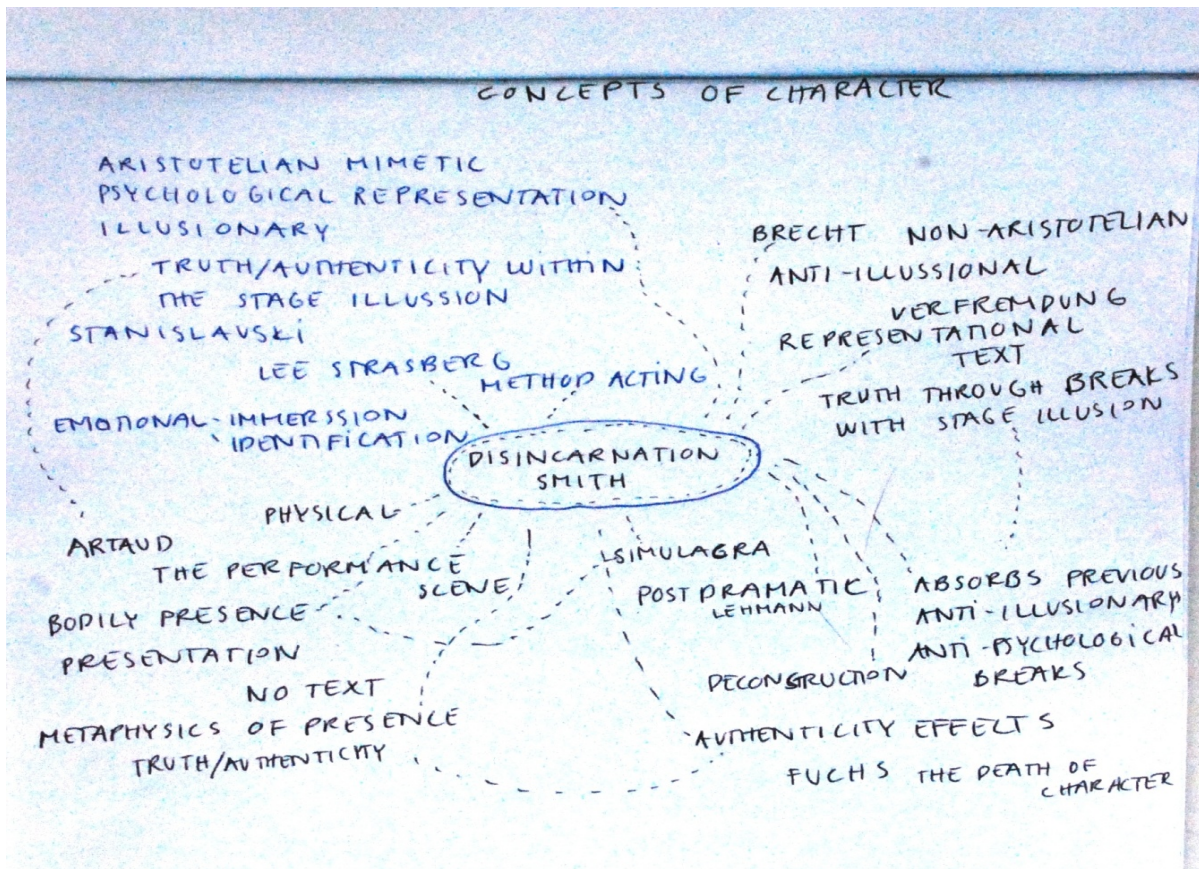 CONCEPTS OF CHARACTER
ARISTOTELIAN MIMETIC
PSYCHOLOGICAL REPRESENTATION
ILLUSIONARY
TRUTH/AUTHENTICITY WITHIN
THE STAGE ILLUSSION
STANISLAVSKI
LEE STRASBERG
METHOD ACTING
EMOTIONAL-IMMERSSION
IDENTIFICATION
BRECHT NON-ARISTOTELIAN
ANTI-ILLUSSIONAL
VERFREMDUNG
REPRESENTATIONAL
TEXT
TRUTH THROUGH BREAKS
WITH STAGE ILLUSION
DISINCARNATION
SMITH
PHYSICAL
ARTAUD
THE PERFORMANCE
SCENE
BODILY PRESENCE
PRESENTATION
NO TEXT
METAPHYSICS OF PRESENCE
TRUTH/AUTHENTICITY
SIMULAGRA
POSTDRAMATIC
LEHMANN
ABSORBS PREVIOUS
ANTI-ILLUSIONARY
ANTI-PSYCHOLOGICAL
BREAKS
DECONSTRUCTION
AUTHENTICITY EFFECTS
FUCHS THE DEATH OF
CHARACTER